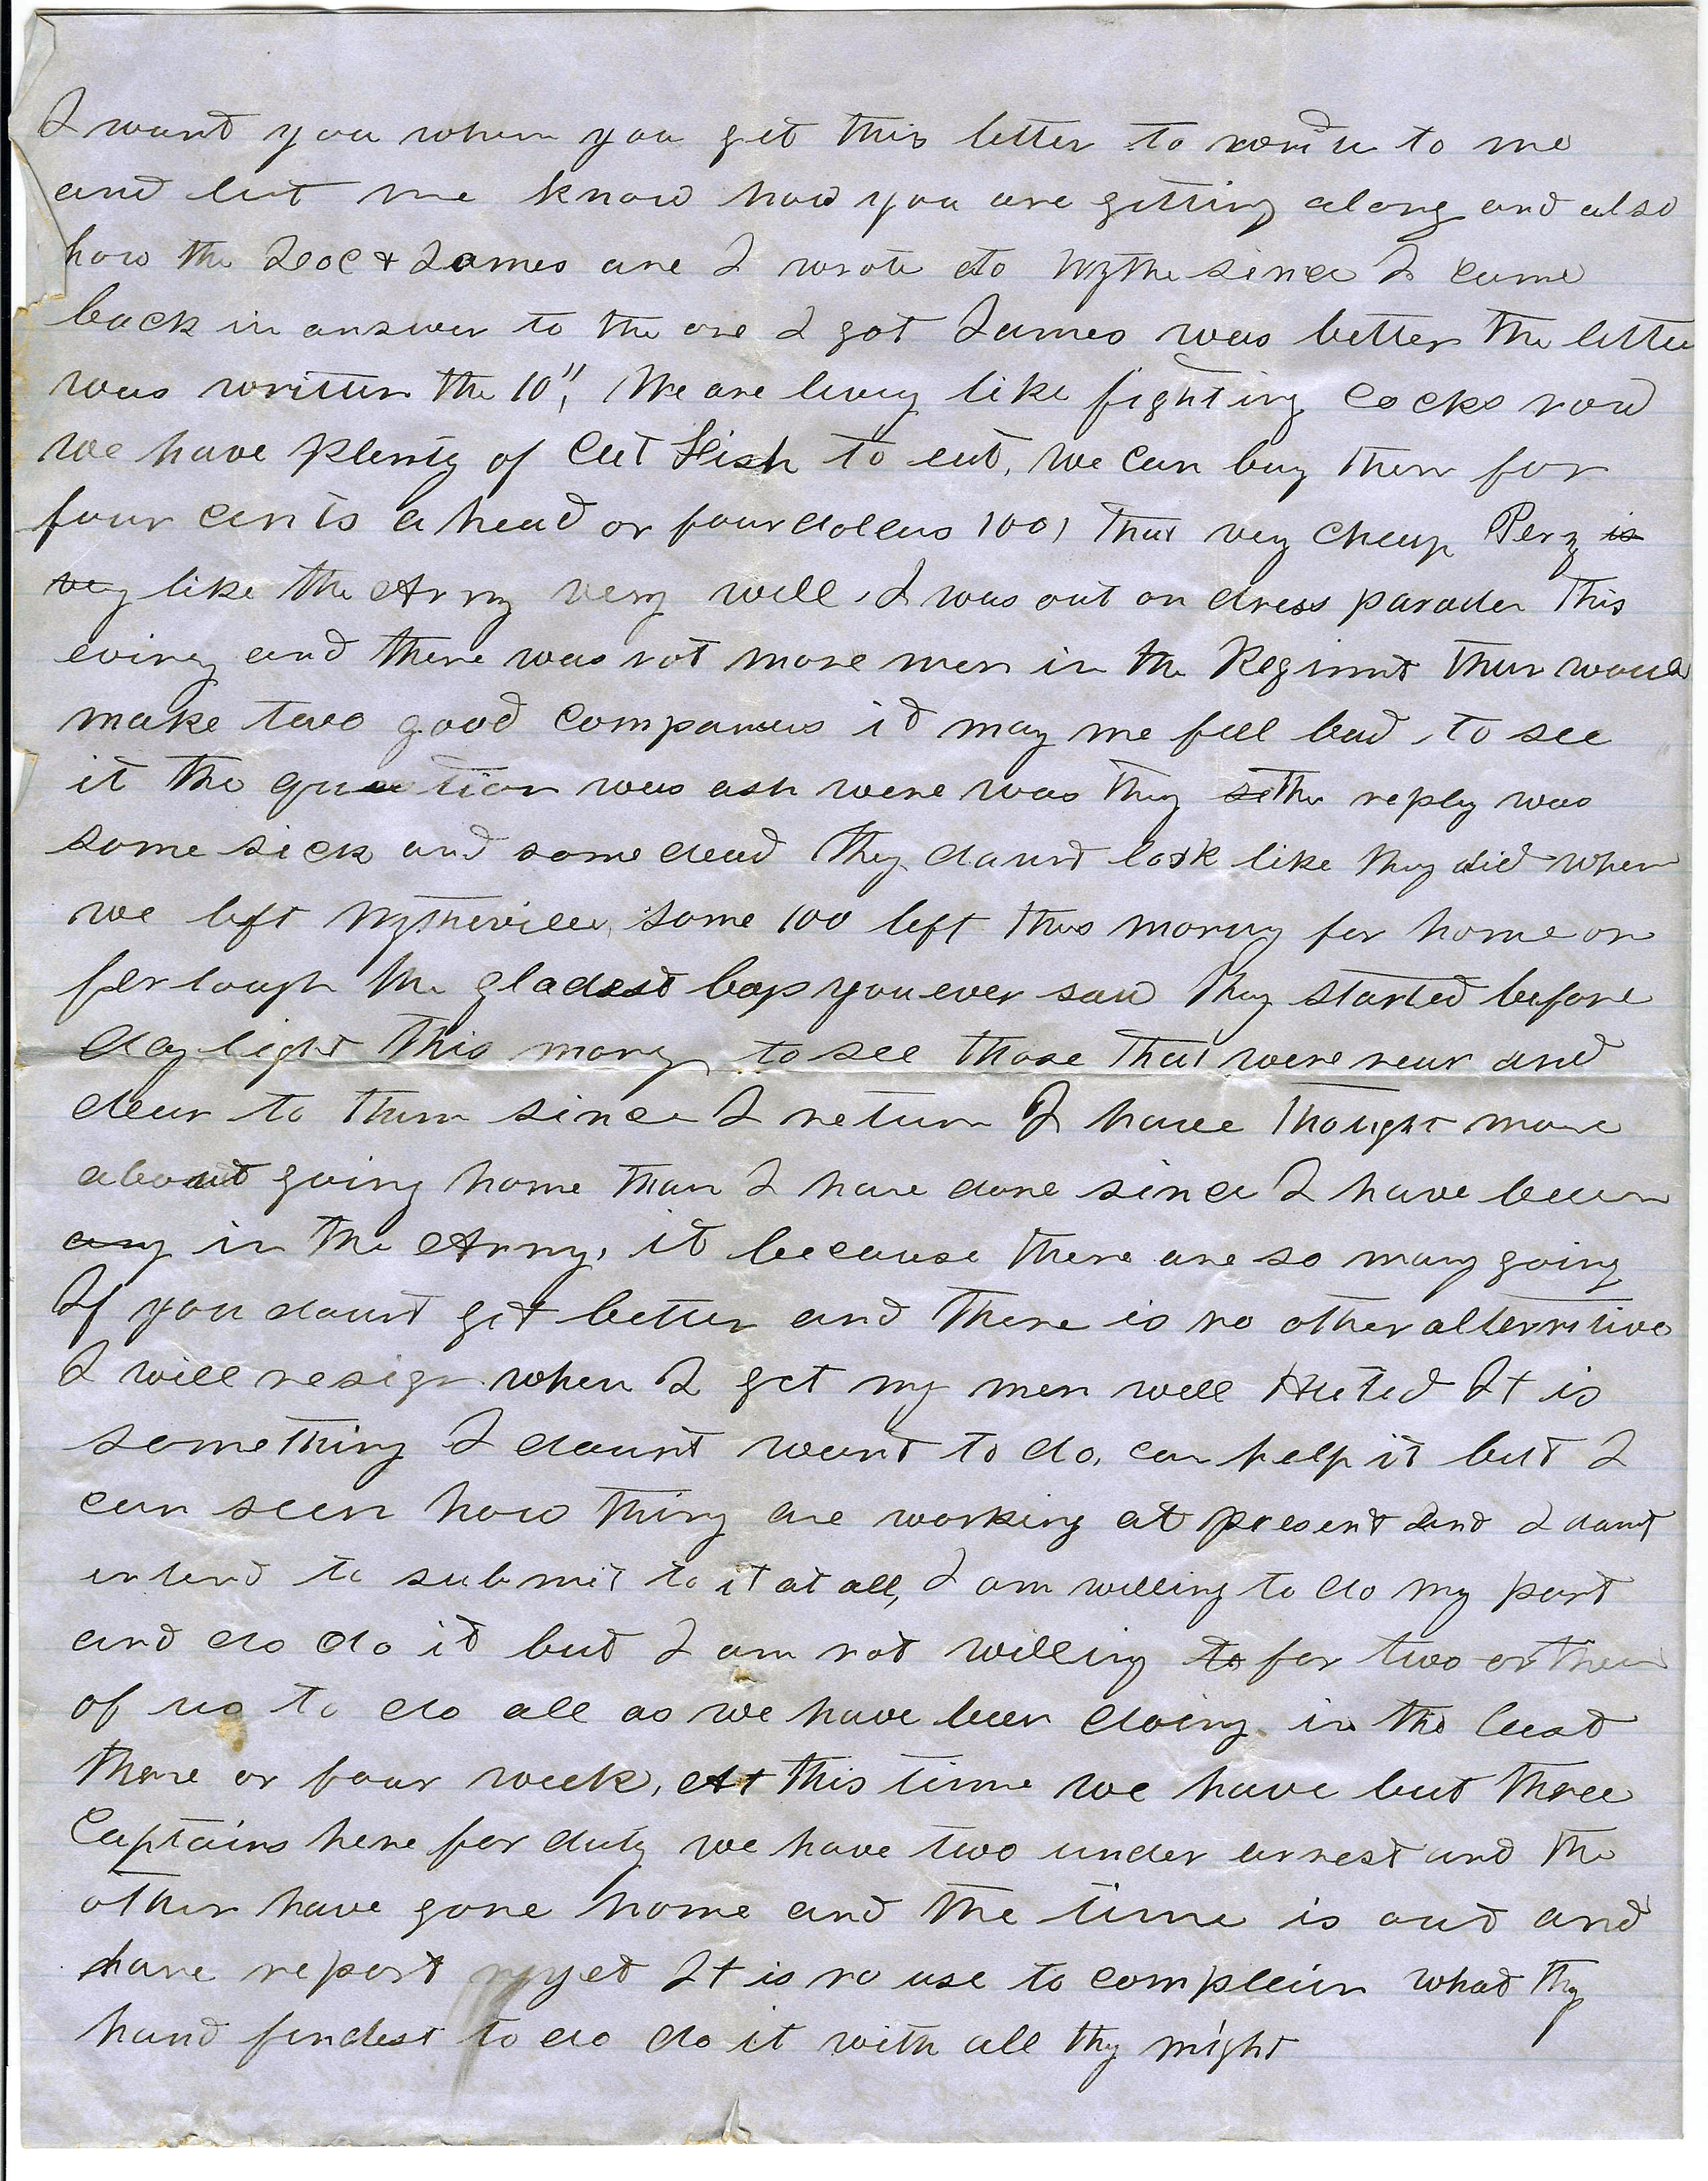 I want you when you get this letter to write to me
and let me know how you are getting along and also
how the Doc & James are I wrote to Wythe since I came
back in answer to the one I got James was better the letter
was written the 10", We are livey like fighting cocks now
we have plenty of Cat Fish to eat, we can buy them for
four cents a head or four dolears 100, that very cheap Pery is
very like the Army very well, I was out on dress parade this
eviney and there was not more men in the Regimnt than would
make two good companies it may me fell bad, to see
it the question was ask were was they se the reply was
some sick and some dead they daunt look like they did when
we left Wytheville, some 100 left this morning for home on
ferlough the gladest boys you ever saw they started before
day light this morng to see those that were near and
dear to them since I return I have thought more
about going home than I have done since I have been
any in the Army, it because there are so many going
If you daunt get better and there is no other alternitive
I will resign when I get my men well It is
something I daunt want to do, can help it but I
can seen how thing are working at present and I daunt
intend to submit to it at all, I am willing to do my part
and do do it but I am not willing to for two or three
of us to do all as we have been doing in the last
there or four week, At this time we have but three
Captains here for duty we have two under arrest and the
other have gone home and the time is out and
have report yet It is no use to complain what thy
hand findest to do do it with all thy might